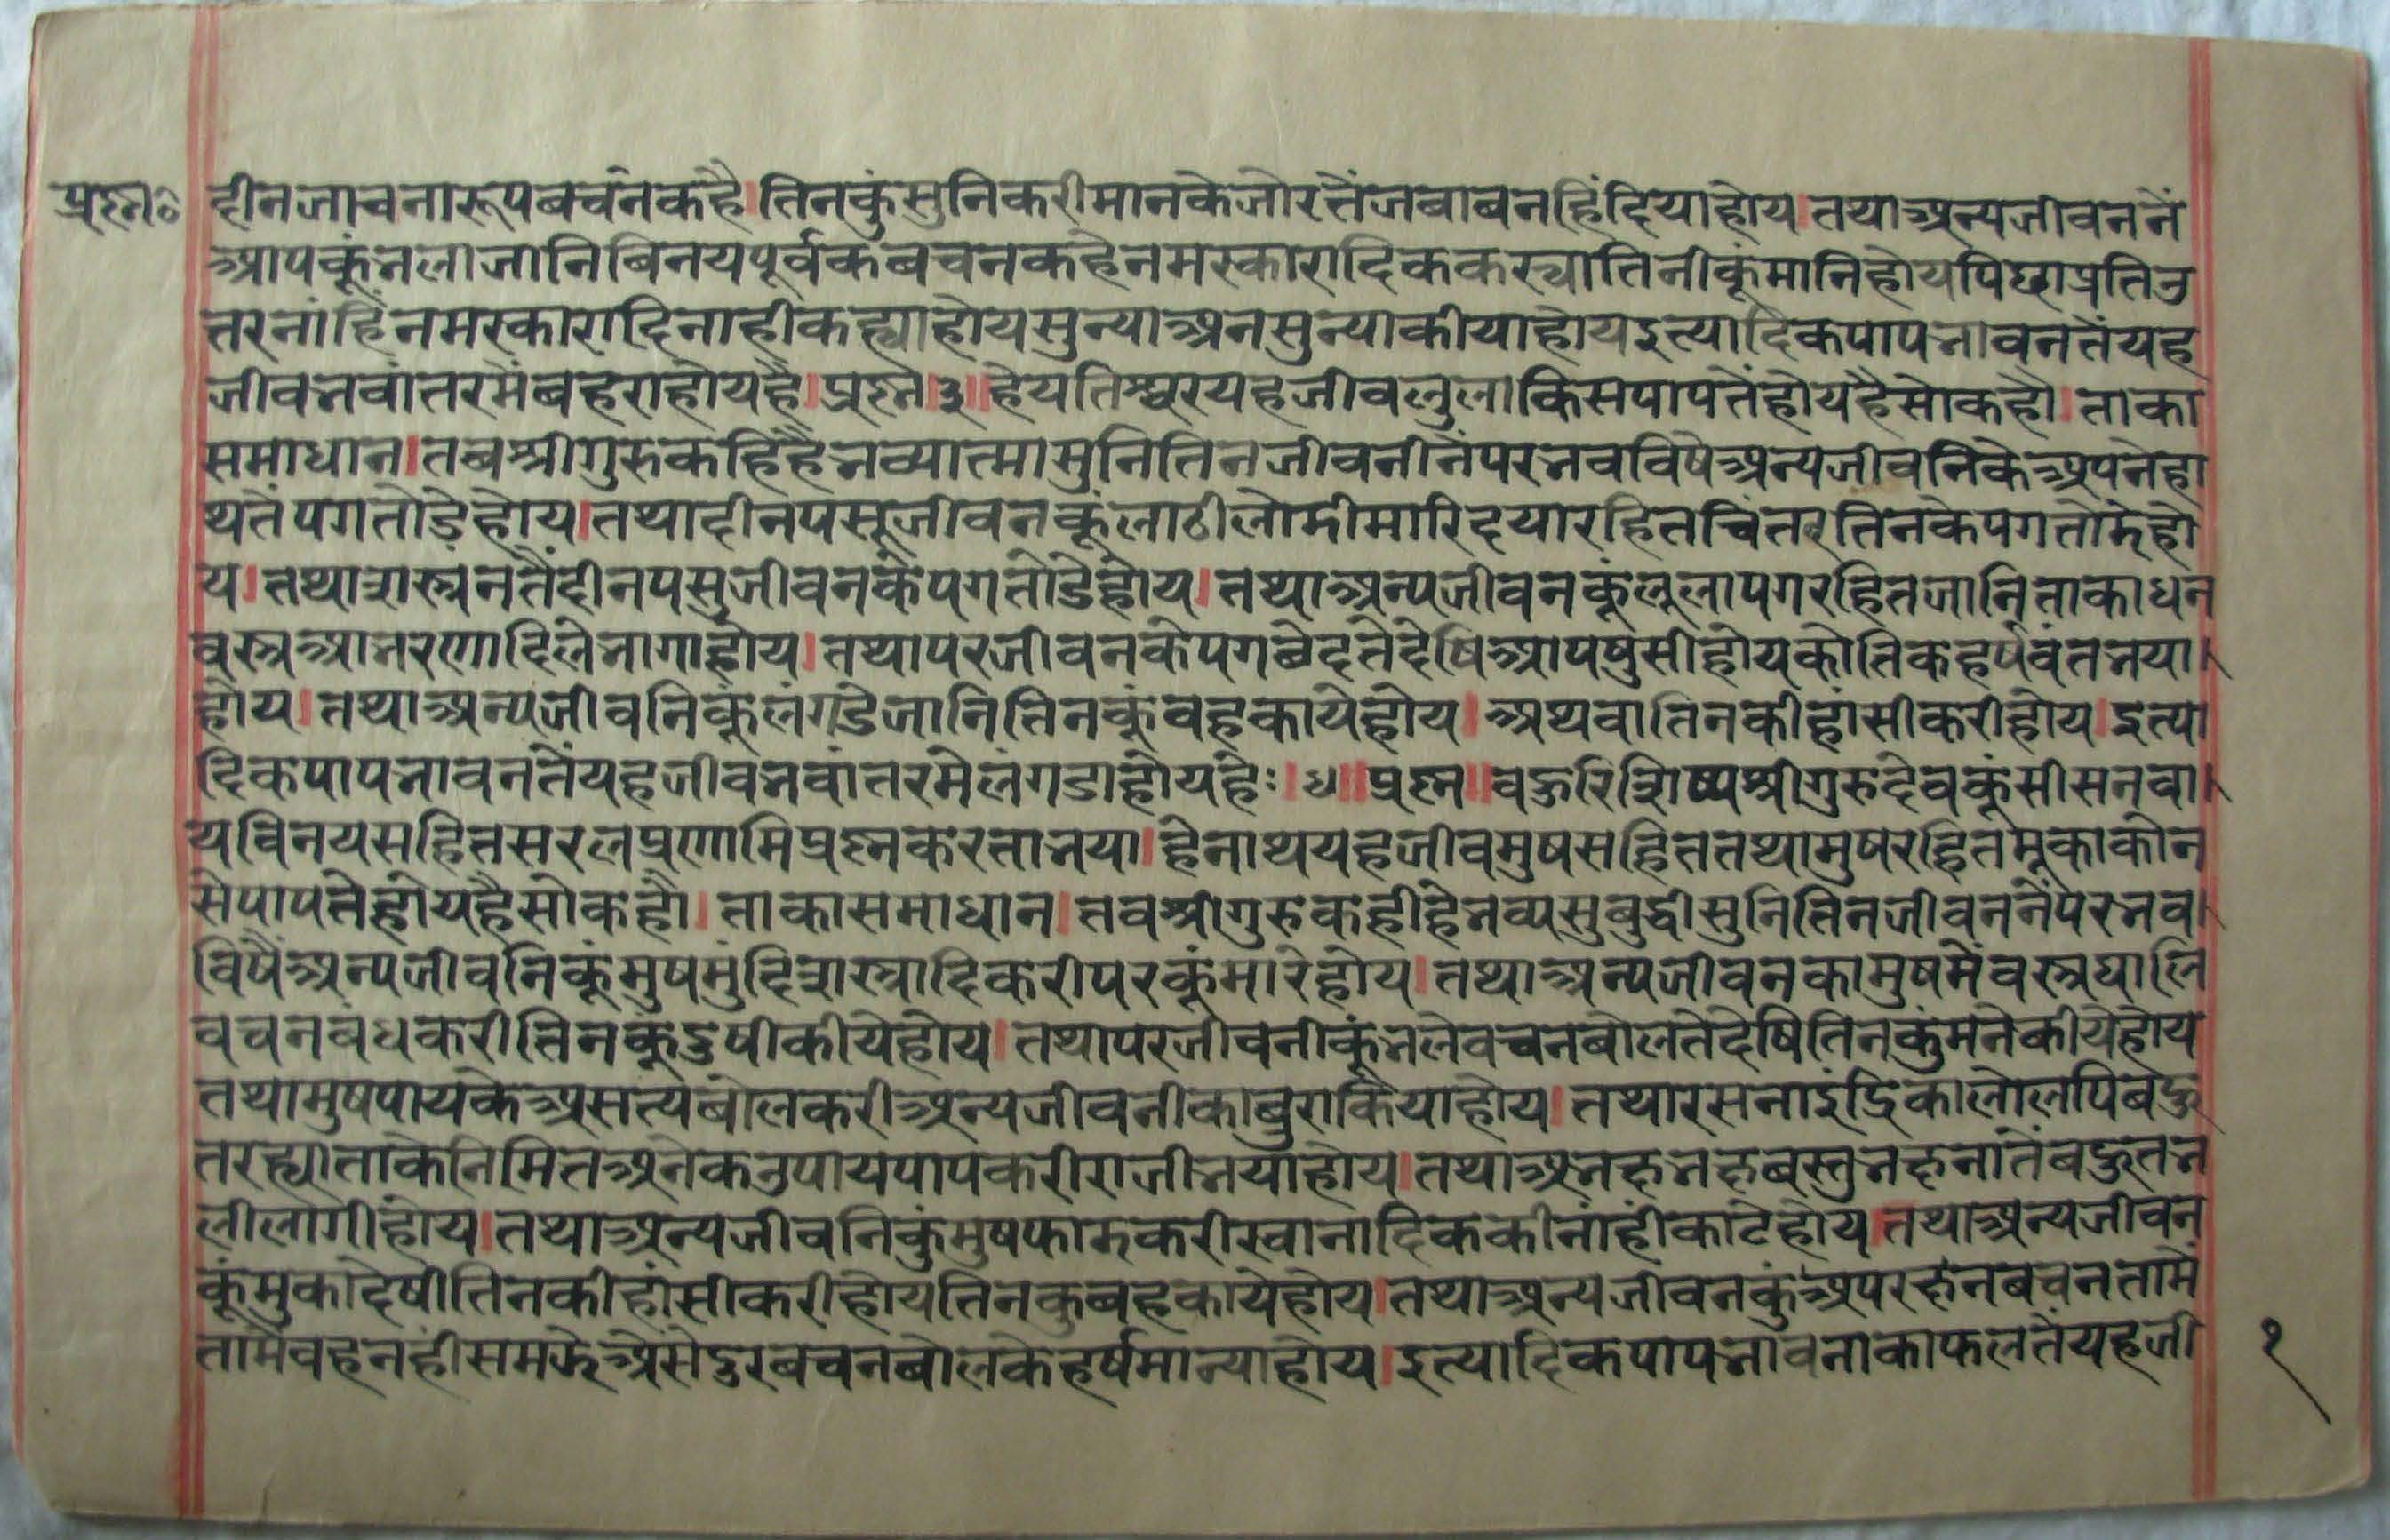 प्रश्न०
दीनजाचनारूपबचनकहै।तिनकुंसुनिकरीमानकेजोरतैंजबाबनहिंदियाहोय।तथाअन्यजीवननैं
आपकूंभलाजानिबिनयपूर्वकबचनकहेनमस्कारादिककस्यातिनीकूंमानिहोयपिछाप्रतिउ
तरनांहिंनमस्कारादिनाहीकह्याहोयसुन्याअनसुन्याकीयाहोयइत्यादिकपापभावनतैंयह
जीवभवांतरमैंबहराहोयहै।प्रश्न३॥हेयतिश्वरयहजीवलुलाकिसपापतैंहोयहैसोकहौ।ताका
समाधान।तबश्रीगुरुकहिहैभव्यात्मासुनितिनजीवनीनैंपरभवविषैअन्यजीवनिकेअपनेहा
थतैंपगतोडेहोय।तथादीनपसूजीवनकूंलाठीलोढीमारिदयारहितचिंतरतिनकेपगतोडेहो
य।तथाशस्त्रनतैंदीनपसुजीवनकेपगतोडेहोय।तथाअन्यजीवनकूंलूलापगरहितजानिताकाधन
वस्त्रआभरणादिलेभागाहोय।तथापरजीवनकेपगछेदतेदेषिआपषुसीहोयकोतिकहर्षवंतभया।
होय।तथाअन्यजीवनिकूंलंगडेजानितिनकूंवहकायेहोय।अथवातिनकीहांसीकरीहोय।इत्या
दिकपापभावनतैंयहजीवभवांतरमैलंगडाहोयहैः।४॥प्रश्न॥वहुरिशिष्यश्रीगुरुदेवकूंसीसनवा।
यविनयसहितसरलप्रणामिप्रश्नकरताभया।हेनाथयहजीवमुषसहिततथामुषरहितमूकाकोन
सेपापतेहोयहैसोकहौ।ताकासमाधान।तवश्रीगुरुकहीहैभव्यसुबुद्धीसुनितिनजीवननैंपरभव।
विषैंअन्यजीवनिकूंमुषमुंदिशस्त्रादिकरीपरकूंमारेहोय।तथाअन्यजीवनकामुषमैंवस्त्रघालि
वचनबंधकरीतिनकूंदुषीकीयेहोय।तथापरजीवनीकूंभलेवचनबोलतेदेषितिनकुंमनेकीयेहोय
तथामुषपायकेअसत्यबोलकरीअन्यजीवनीकाबुराकियाहोय।तथारसनाइंद्रिकालोलपिबहु
तरह्याताकेनिमितअनेकउपायपापकरीराजीभयाहोय।तथाअभक्षभक्षबस्तुभक्षनातैंबहुतभ
लीलागीहोय।तथाअन्यजीवनिकुंमुषफाडकरीस्वानादिककीनांहींकाटेहोय।तथाअन्यजीवन
कूंमुकादेषीतिनकीहांसीकरीहोयतिनकुबहकायेहोय।तथाअन्यजीवनकुंअपरछेनबचनतामैं
तामैवहनहीसमझेअैसेदुरबचनबोलकेहर्षमान्याहोय।इत्यादिकपापभावनाकाफलतैंयहजी
१